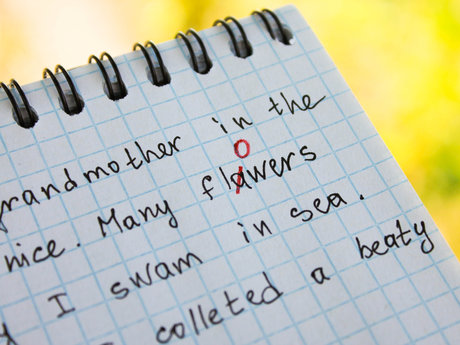 randmother in the
nice. Many flawers
o
I swam in sea.
colleted a beaty